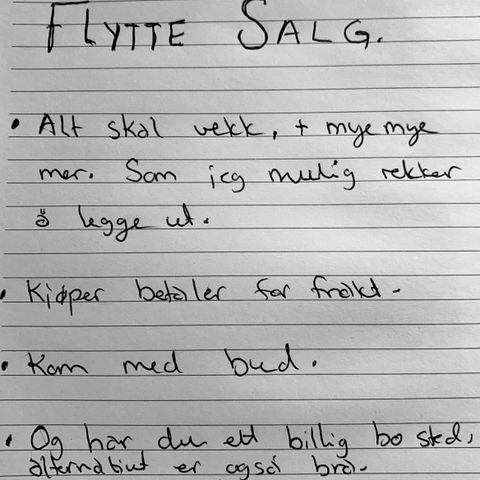 FLYTTE SALG.
• Alt skal vekk, + mye mye
mer. Som jeg mulig rekker
å legge ut.
• Kjøper betaler for frakt-
• Kom med bud.
• Og har du ett billig bo sted,
alternativt er også bra-